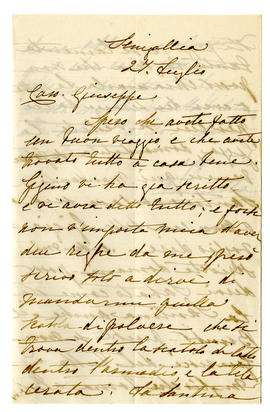 Sinigallia
27. Luglio
Caro. Giuseppe
Spero che avete fatto
un buon viaggio, e che avete
trovato tutto a casa bene.
Gigino vi ha già scritto
e vi avrà detto tutto; e forse
non v'importa mica d'aver
due righe da me
scrivo a dirvi di
mandarmi quella
scatola di polvere che si
trova dentro la scatola di
dentro l'armadio e la tela
cerata. La Santina